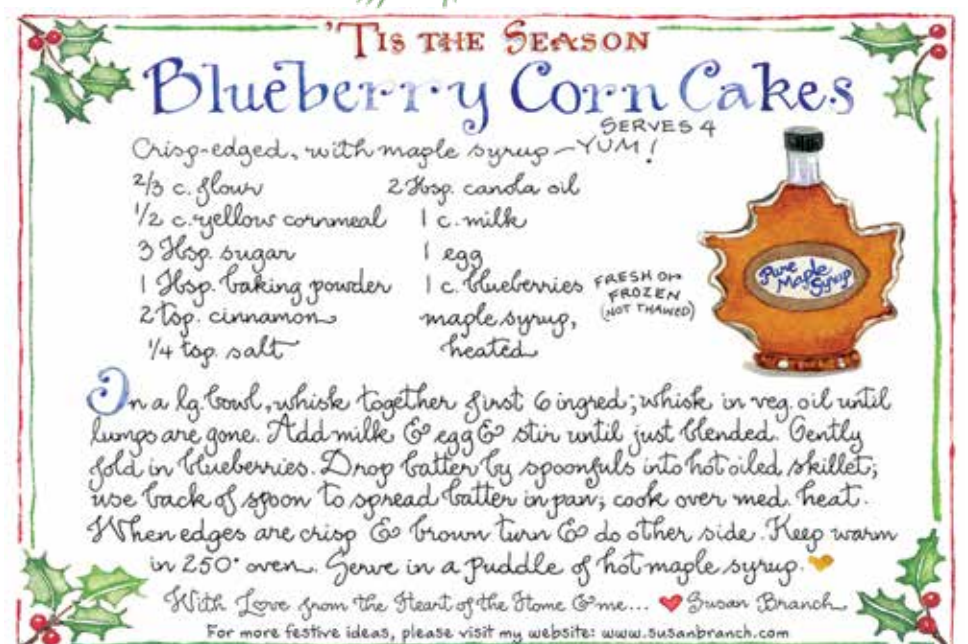 'TIS THE SEASON
Blueberry Corn Cakes
SERVES 4
Crisp-edged, with maple syrup – YUM!
2/3 c. flour
1/2 c. yellow cornmeal
3 Tbsp. sugar
1 Tbsp. baking powder
2 tsp. cinnamon
1/4 tsp. salt
2 Tbsp. canola oil
1 c. milk
1 egg
1 c. blueberries
FRESH OR
FROZEN
(NOT THAWED)
maple syrup,
heated
Pure
Maple
Syrup
In a lg. bowl, whisk together first 6 ingred; whisk in veg. oil until
lumps are gone. Add milk & egg & stir until just blended. Gently
fold in blueberries. Drop batter by spoonfuls into hot oiled skillet;
use back of spoon to spread batter in pan; cook over med. heat.
When edges are crisp & brown turn & do other side. Keep warm
in 250° oven. Serve in a puddle of hot maple syrup.
With Love from the Heart of the Home & me... Susan Branch
For more festive ideas, please visit my website: www.susanbranch.com